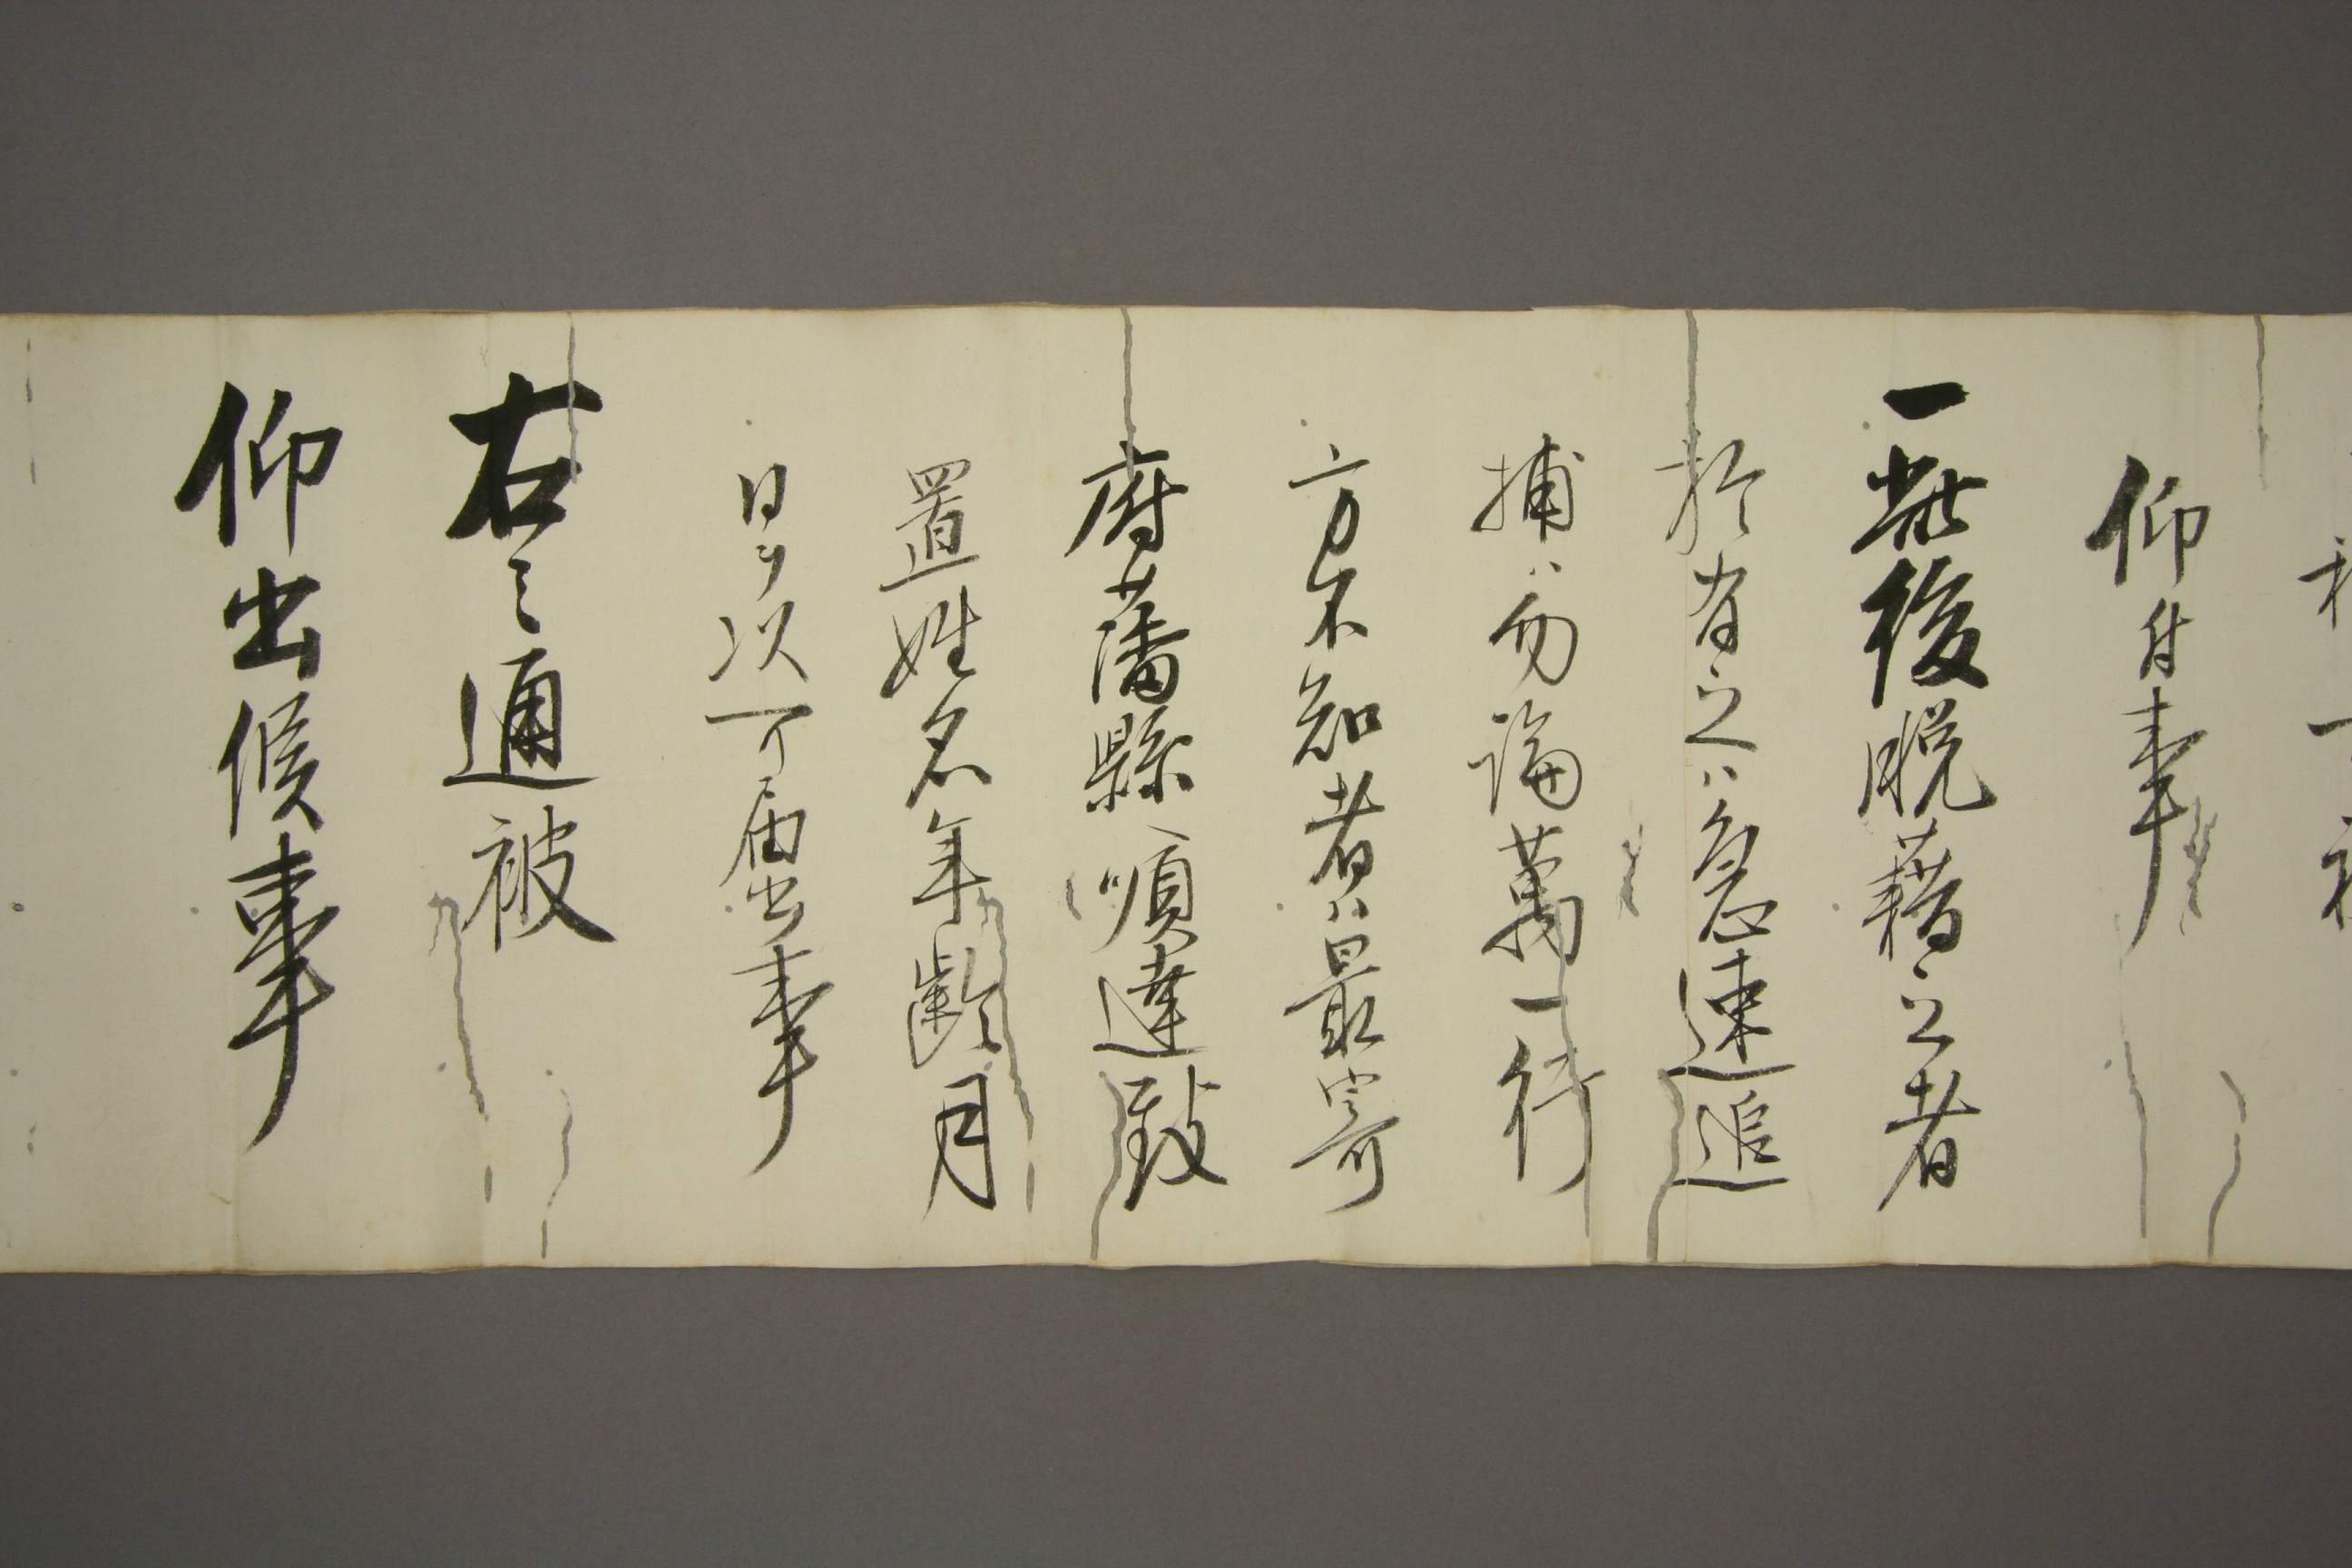 仰付事
一此後脱藉之者
於有之ハ急速追
捕ハ勿論萬一行
方不知者ハ最寄
府藩縣順達致
置姓名年齢月
日ヲ以可届出事
右之通被
仰出候事